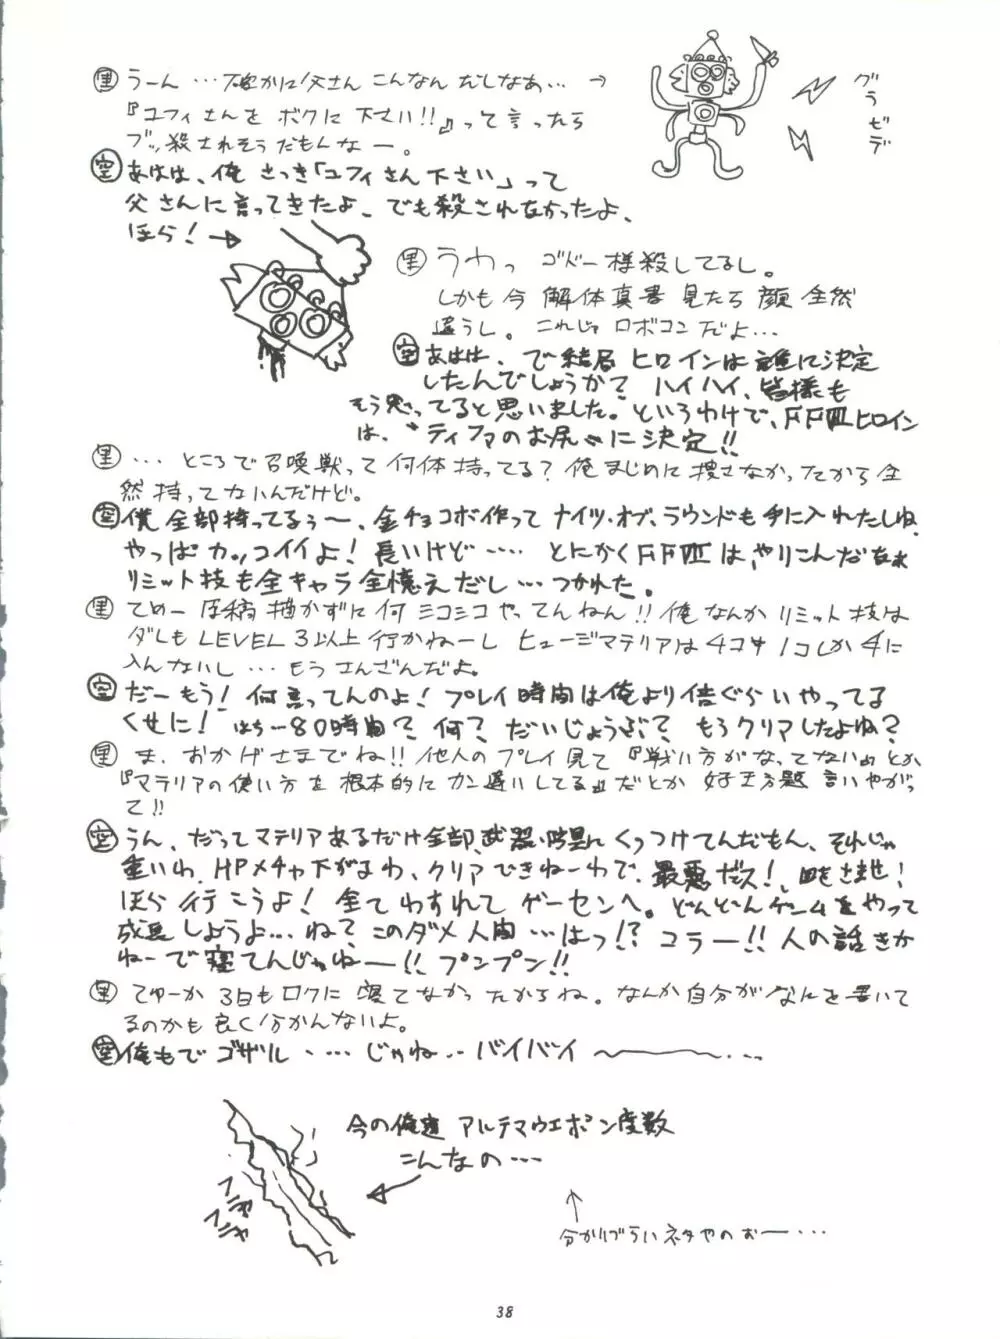 黒 うーん…確かに父さん こんなん だしなあ… →
『ユフィさんを ボクに 下さい!!』って言ったら
ブッ殺されそうだもんなー。
グラゼデ
空 あはは、俺 さっき「ユフィさん下さい」って
父さんに言ってきたよ、でも殺されなかったよ、
ほら!→
黒 うわっ ゴドー様殺してるし。
しかも今 解体真書 見たら 顔 全然
違うし。これじゃ ロボコン だよ…
空 あはは、で結局 ヒロインは誰に決定
したんでしょうか? ハイハイ、皆様も
そう思ってると思いました。というわけで、FFⅦヒロイン
は、“ティファのお尻”に決定!!
黒 … ところで召喚獣って 何体 持ってる? 俺まじめに 捜さなかったから全
然 持ってないんだけど。
空 僕 全部持ってるぅ〜、金チョコボ作って ナイツ・オブ・ラウンドも手に入れたしね
やっぱ カッコイイよ! 長いけど…… とにかくFFⅦは、やりこんだなぁ
リミット技も全キャラ全憶えだし…つかれた。
黒 てめー 原稿 描かずに 何 シコシコ やってんねん!! 俺 なんか リミット 技は
ダレも LEVEL 3以上 行かねーし ヒュージマテリアは 4コ中 1コしか 手に
入んないし … もう さんざんだよ。
空 だーもう! 何言ってんのよ! プレイ時間は俺より倍ぐらいやってる
くせに! はち…80時間? 何? だいじょうぶ? もうクリアしたよね?
黒 ま、おかげさまでね!! 他人の プレイ 見て『戦い方が なってない』とか
『マテリアの使い方 を 根本的に カン違いしてる』だとか 好き放題 言いやがっ
て!!
空 うん、だってマテリアあるだけ全部、武器・防具に くっつけてんだもん、それじゃ
重いわ、HPメチャ下がるわ、クリアできねーわで、最悪だス! 目をさませ!
ほら 行こうよ! 全て わすれて ゲーセンへ。どんどんゲームをやって
成長しようよ… ね? このダメ人間 …はっ!? コラー!! 人の話きか
ねーで 寝てんじゃねー!! プンプン!!
黒 てゆーか 3日もロクに 寝てなかったからね。なんか自分が なにを書いて
るのかも良く分かんないよ。
空 俺もで ゴザル ‥‥ じゃね‥ バイバイ 〜‥
今の俺達 アルテマウエポン度数
こんなの…
フニャ フニャ
↑
分かりづらいネタやのおー…
38